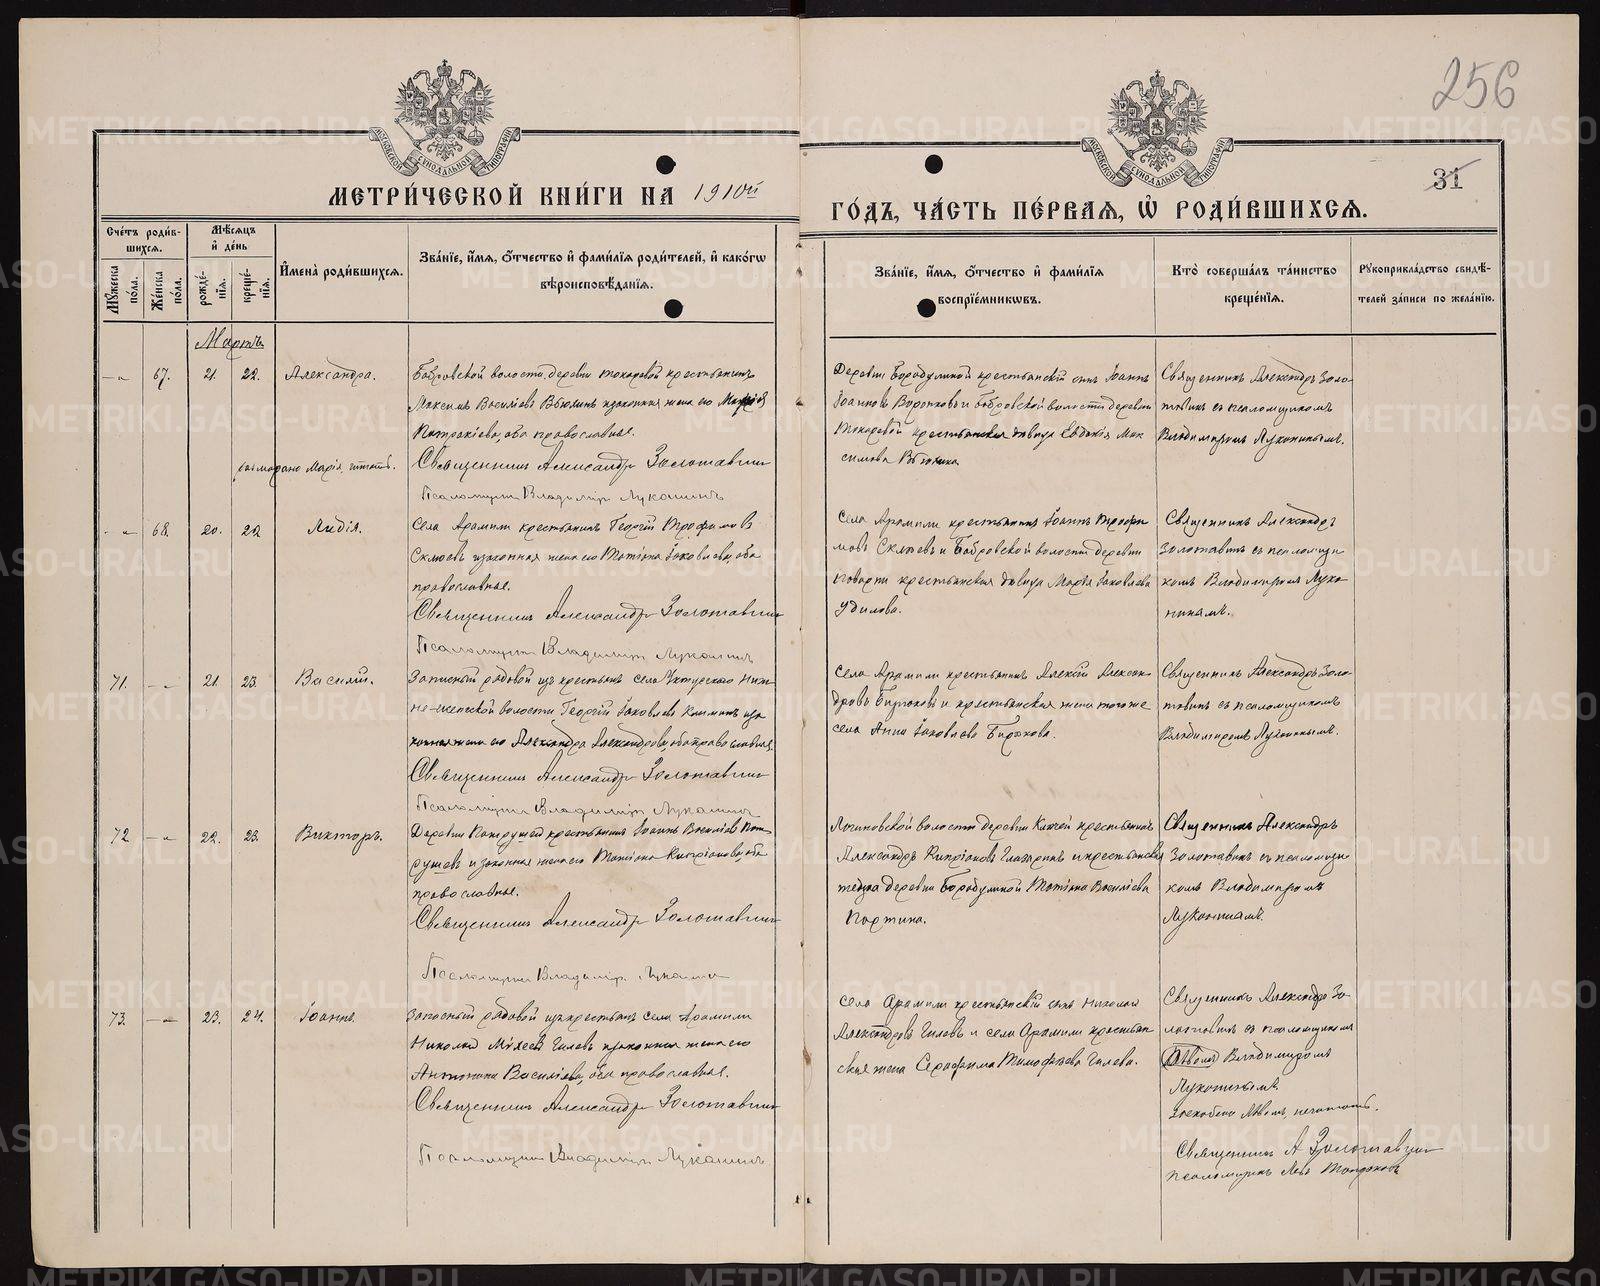 256
31
МЕТРИ́ЧЕСКОЙ КНИ́ГИ НА 1910й
ГО́ДЪ, ЧА́СТЬ ПЕ́РВАЯ, Ѡ РОДИ́ВШИХСЯ.
Сче́тъ роди́в-
шихся.
Мꙋ́жеска по́ла.
Же́нска по́ла.
Мѣ́сяцъ
и де́нь
рожде́-
нїя.
креще́-
нїя.
Имена̀ роди́вшихся.
Зва́нїе, и́мя, ѻ́тчество и фами́лїя роди́телей, и како́гѡ
вѣроисповѣ́данїя.
Зва́нїе, и́мя, ѻ́тчество и фами́лїя
воспрїе́мникѡвъ.
Кто̀ соверша́лъ та́инство
креще́нїя.
Рꙋкоприкла́дство свидѣ́-
телей за́писи по жела́нїю.
Мартъ
67. 21. 22. Александра.
Бобровской волости деревни Токаревой крестьянинъ
Максимъ Василіевъ Вьюхинъ и законная жена его Марія
Патракіева, оба православные.
Марія, читать.
Священникъ Александръ Золотавинъ
Псаломщикъ Владиміръ Луканинъ
Деревни Бородулиной крестьянскій сынъ Іоаннъ
Іоанновъ Воронковъ и Бобровской волости деревни
Токаревой крестьянская дѣвица Евдокія Мак
симова Вьюхина.
Священникъ Александръ Золо-
тавинъ съ псаломщикомъ
Владимиромъ Луканинымъ.
68. 20. 22. Лидія.
Села Арамили крестьянинъ Георгій Трофимовъ
и законная жена его Татіана Іаковлева, оба
православные.
Священникъ Александръ Золотавинъ
Псаломщикъ Владиміръ Луканинъ
Села Арамили крестьянинъ Іоаннъ Трофи
мовъ и Бобровской волости деревни
крестьянская дѣвица Марія Іаковлева
Удилова.
Священникъ Александръ
Золотавинъ съ псаломщи-
комъ Владимиромъ Лука-
нинымъ.
71. 21. 23. Василій.
Запасный рядовой изъ крестьянъ села Уктусскаго Ниж-
не-исетской волости Георгій Іаковлевъ и за
конная жена его Александра Александрова, оба православные.
Священникъ Александръ Золотавинъ
Псаломщикъ Владиміръ Луканинъ
Села Арамили крестьянинъ Алексій Алексан-
дровъ Бирюковъ и крестьянская жена того же
села Анна Іаковлева Бирюкова.
Священникъ Александръ Золо-
тавинъ съ псаломщикомъ
Владимиромъ Луканинымъ.
72. 22. 23. Викторъ.
Деревни крестьянинъ Іоаннъ Василіевъ
и законная жена его Татіана Кипріанова, оба
православные.
Священникъ Александръ Золотавинъ
Псаломщикъ Владиміръ Луканинъ
Логиновской волости деревни Ключей крестьянинъ
Александръ Кипріановъ Глазыринъ и крестьянская
деревни Бородулиной Татіана Василіева
Портина.
Священникъ Александръ
Золотавинъ съ псаломщи-
комъ Владимиромъ
Луканинымъ.
73. 23. 24. Іоаннъ.
Запасный рядовой изъ крестьянъ села Арамили
Николай Михеевъ Гилевъ и законная жена его
Антонина Василіева, оба православные.
Священникъ Александръ Золотавинъ
Псаломщикъ Владиміръ Луканинъ
Села Арамили крестьянскій сынъ Николай
Александровъ Гилевъ и села Арамили крестьян-
ская жена Серафима Тимофеева Гилева.
Священникъ Александръ Зо-
лотавинъ съ псаломщикомъ
Львомъ Владимиромъ
Луканинымъ.
Священникъ А Золотавинъ
псаломщикъ Левъ
METRIKI.GASO-URAL.RU